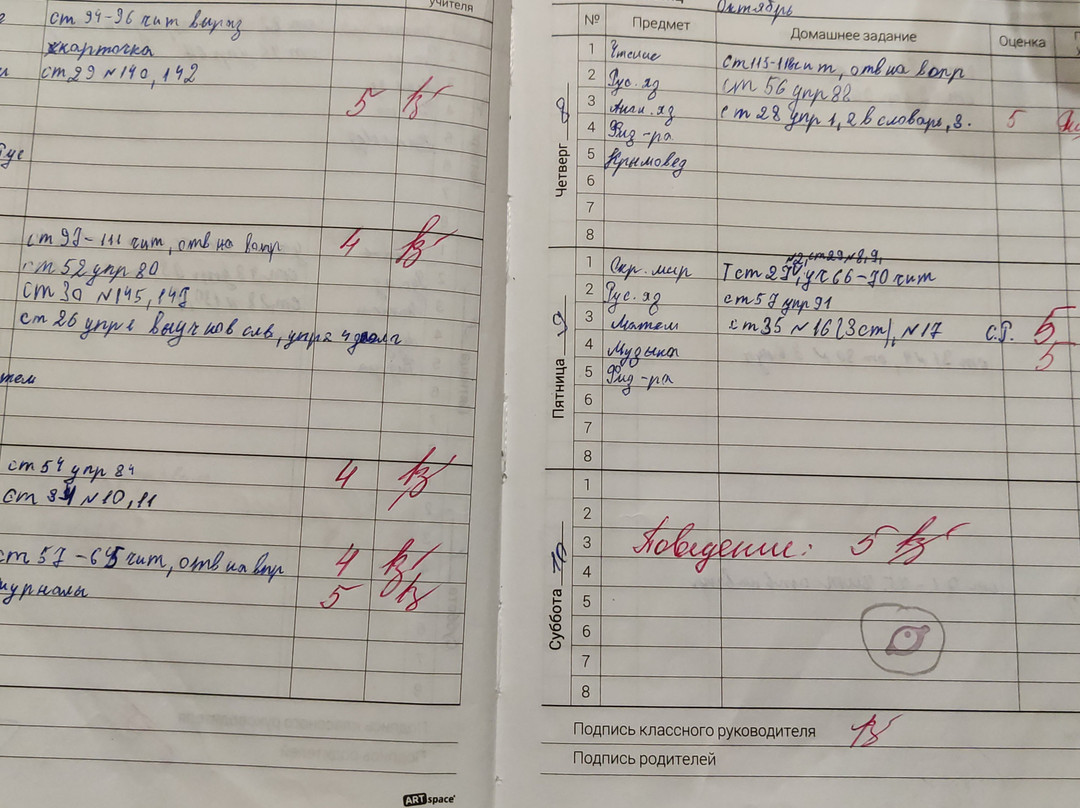 учителя
ст 94-96 чит выраз
карточка
ст 29 №140, 142
5
ст 97-111 чит, отв на вопр 4
ст 52 упр 80
ст 30 №145, 147
ст 26 упр 1 выуч нов слв, упр 2
ст 54 упр 84 4
№10, 11
ст 57-65 чит, отв на впр 4
журналы 5
ARTspace
Октябрь
№ Предмет Домашнее задание Оценка
Четверг 8
1 Чтение ст 113-118 чит, отв на вопр
2 Рус. яз ст 56 упр 88
3 Англ. яз ст 28 упр 1, 2 в словарь, 3. 5
4 Физ-ра
5 Крымовед
6
7
8
Пятница 9
№2, ст 29 №8,9,
1 Окр. мир Т ст 29, уч 66-70 чит
2 Рус. яз ст 57 упр 91
3 Матем ст 35 №16 (3 ст), №17 С.Р. 5
4 Музыка 5
5 Физ-ра
6
7
8
Суббота 10
1
2
3 Поведение: 5
4
5
6
7
8
Подпись классного руководителя
Подпись родителей